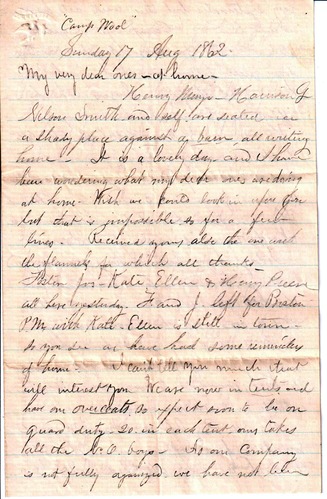 "Camp Wool"
Sunday 17 Aug 1862.
My very dear ones - at home -
Henry Harrison G
Nelson Smith and self are seated in
a shady place against a barn all writing
home - It is a lovely day and I have
been wondering what my dear ones are doing
at home. Wish we could look in upon you
but that is impossible so for a few
lines. Received yours also the one with
the flannels for which all thanks -
for Kate Ellen & Henry
all here yesterday. F and J left for Boston
P.M. with Kate - Ellen is still in town -
so you see we have had some reminders
of home - I can't tell you much that
will interest you. We are now in tents and
have our overcoats so expect soon to be on
guard duty - 20 in each tent ours takes
all the boys - As our Company
is not fully organized we have not been